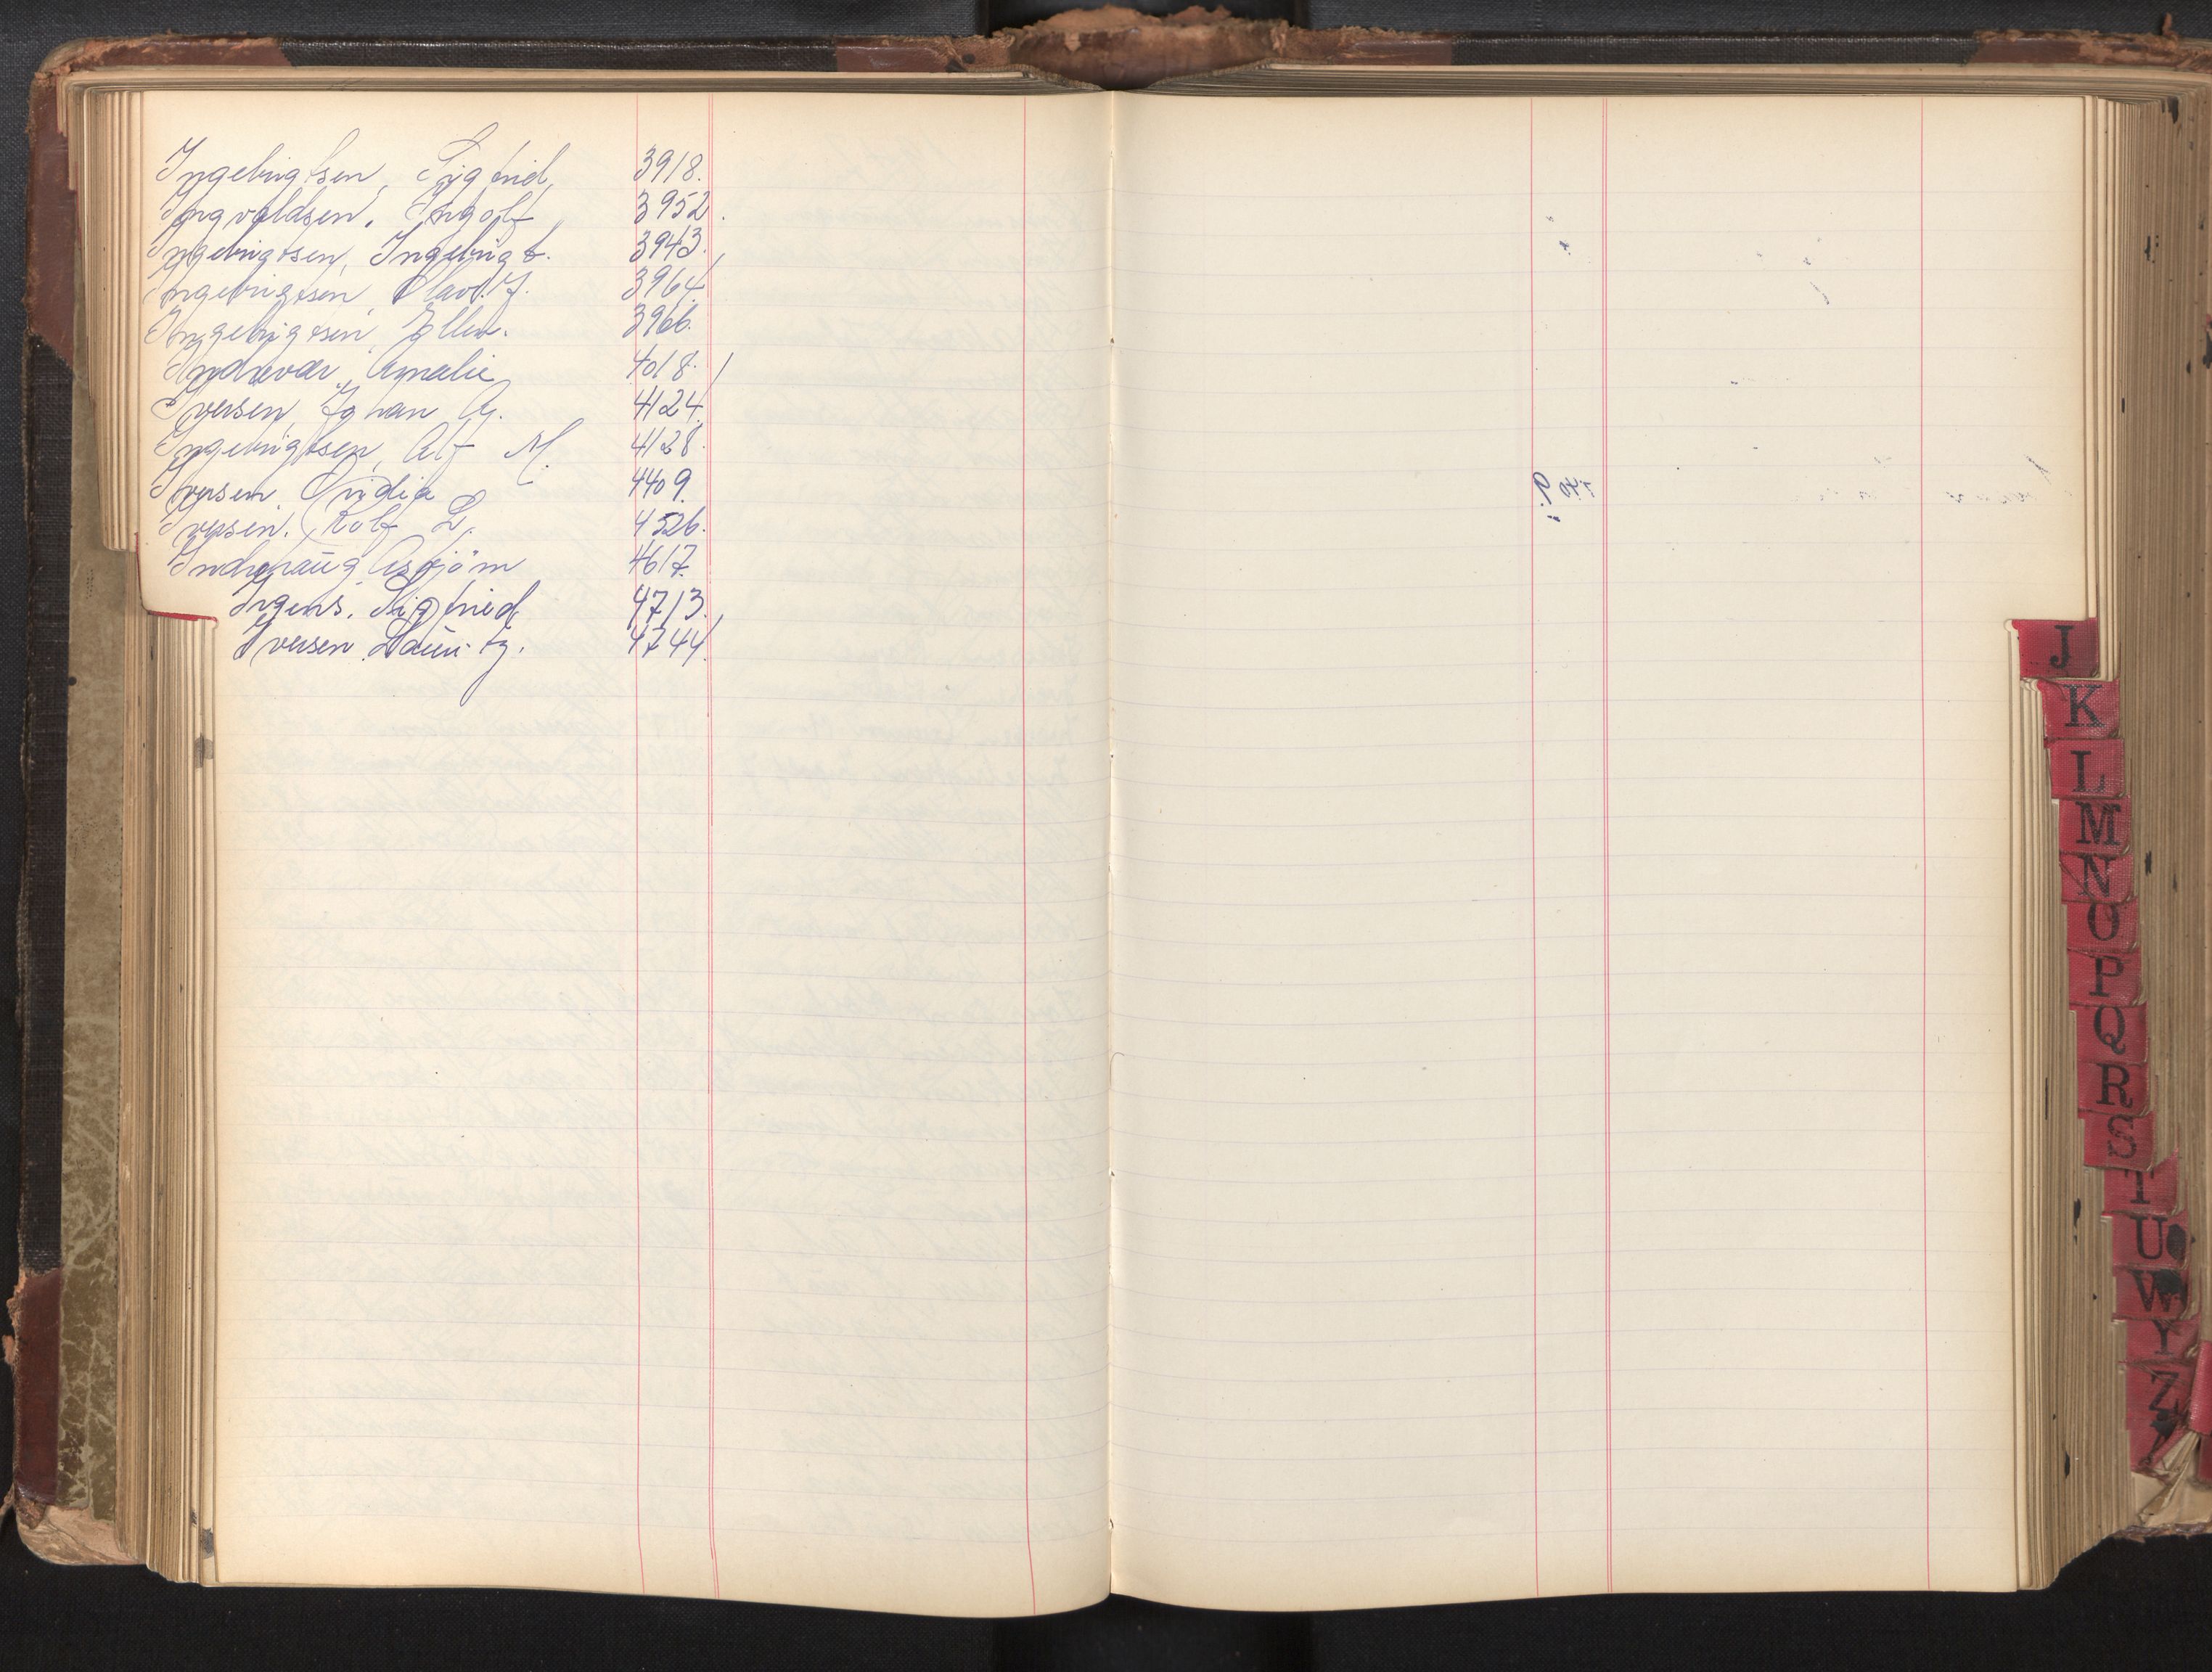 Ingebrigtsen, Sigfrid 3918.
Ingvaldsen, Ingolf 3952.
Ingebrigtsen, Ingebrigt. 3943.
Ingebrigtsen, Olav. J. 3964
Ingebrigtsen, Ellen. 3966.
Indrevær, Amalie 4018.
Iversen, Johan A. 4124.
Ingebrigtsen, Alf M. 4128.
Iversen, Ovidia 4409.
Iversen, Rolf L. 4526.
Indrehaug, Asbjörn 4617.
Irgens, Sigfrid 4713.
Iversen, Lauritz. 4744.
J
K
L
M
N
O
P
Q
R
S
T
U
W
Y
Z